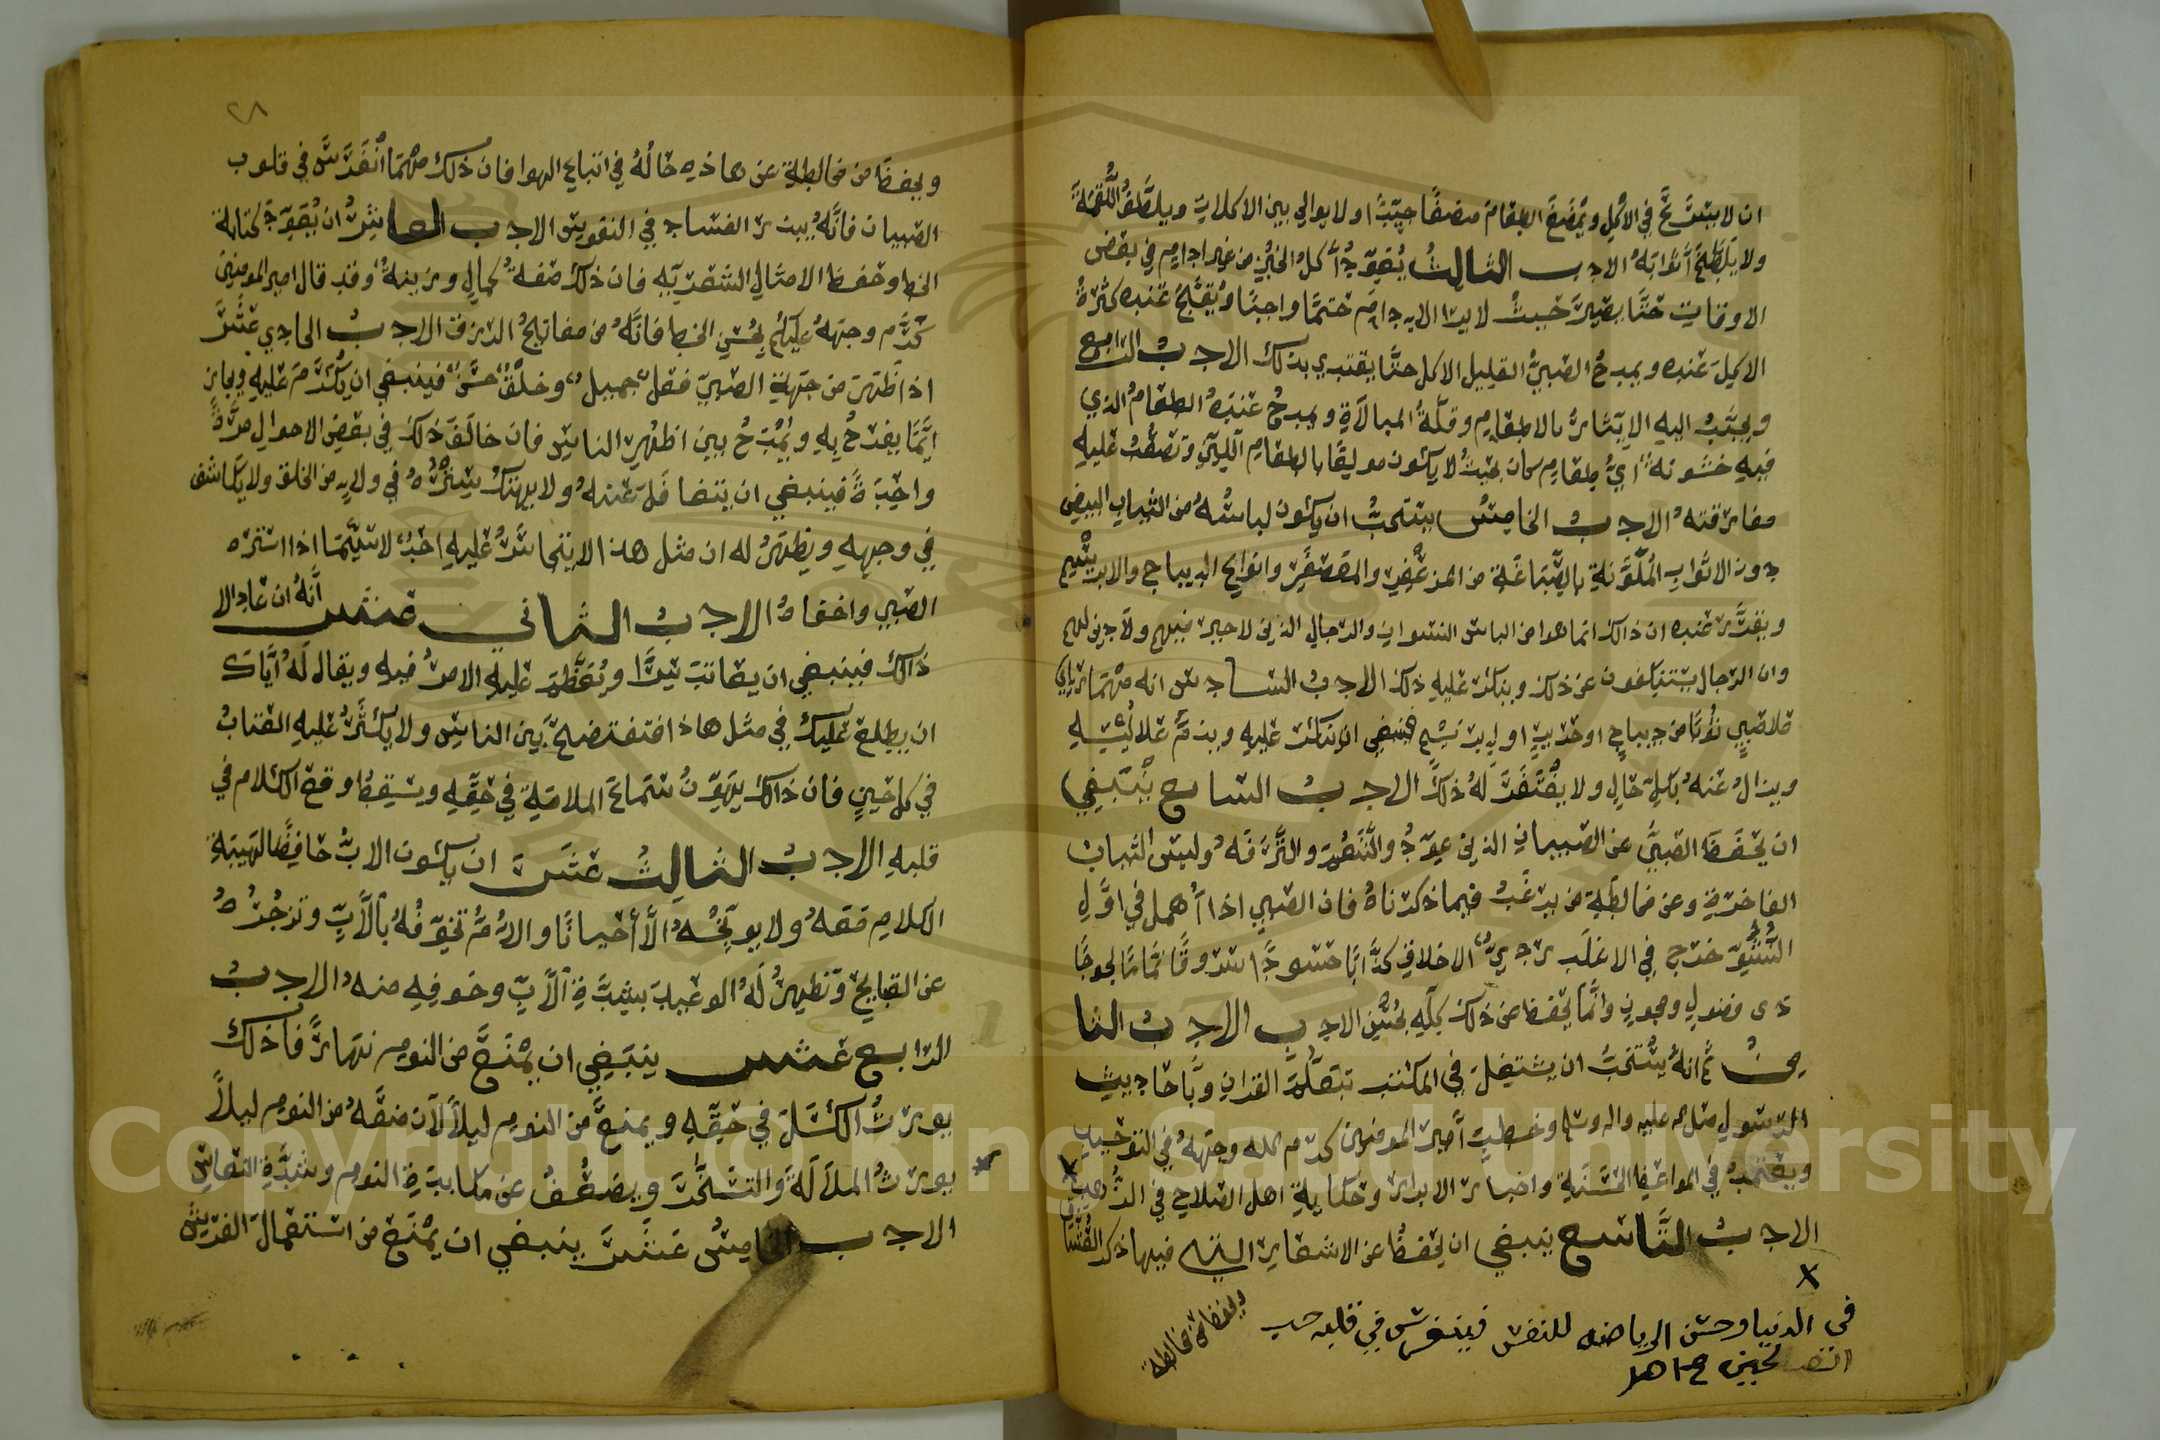 ان لا يتسرع في الاكل ويمضغ الطعام مضغا جيدا ولا يوالي بين الاكلات ويلطف اللقمة
ولا يلطخ أثوابه الادب الثالث يعود أكل الخبز من غير ادام في بعض
الاوقات حتا يصير حيث لا يرا الايدام حتما واجبا ويقبح عنده كثرة
الاكل عنده ويمدح الصبي القليل الاكل حتا يقتدي بذلك الادب الرابع
ويحبب اليه الايثار بالاطعام وقلة المبالاة ويمدح عنده الطعام الذي
فيه خشونه اي طعام كان بحيث لا يكون موليعا بالطعام اللين وتصعب عليه
مفارقته الادب الخامس يستحب ان يكون لباسه من الثياب البيض
دون الاثواب الملونة بالصباغة من المزعفر والمعصفر وانواع الديباج والابريسم
ويقرر عنده ان ذالك انما هو من الباس النسوان والرجال الذين لا خير فيهم ولا دين لهم
وان الرجال يستنكفون عن ذلك وينكر عليه ذلك الادب السادس انه مهما راي
علا صبي ثوبا من ديباج او حرير او ابريسيم فينبغي ان ينكر عليه ويذم علا لبسه
ويزال عنه بكل حال ولا يغتفر له ذلك الادب السابع ينبغي
ان يحفظ الصبي عن الصبيان الذين عودوا التنعم والترفه ولبس الثياب
الفاخرة وعن مخالطة من يرغب فيما ذكرناه فان الصبي اذا أهمل في اول
النشو خرج في الاغلب ردي الاخلاق كذابا حسودا سروقا نماما لجوجا
ذي فضول ومجون وانما يحفظ من ذلك كله بحسن الادب الادب الثا
من ثم انه يستحب ان يشتغل في المكتب بتعلم القران وباحاديث
الرسول صلى الله عليه واله وسلم وخطب أمير المومنين كرم الله وجهه في التوحيد
ويعتمد في المواعظ الحسنة واخبار الابرار وحكاية اهل الصلاح في الزهد X
الادب التاسع ينبغي ان يحفظ عن الاشعار التي فيها ذكر العشاق
X
في الدنيا وحسن الرياضه للنفس فينغرس في قلبه حب
الصالحين
ويحفظ من مخالطة
٢٨
ويحفظ من مخالطة عن هاذه حاله في اتباع الهوا فان ذلك مهما أنغرس في قلوب
الصبيان فانه يبذر الفساد في النفوس الادب العاشر ان يعود كتابة
الخط وحفظ الامثال الشعرية فان ذلك صفة كمال وزينة وقد قال امير المومنين
كرم وجهه عليكم بحسن الخط فانه من مفاتيح الرزق الادب الحادي عشر
اذا ظهر من جهة الصبي فعل جميل وخلق حسن فينبغي ان يكرم عليه ويجاز
انما يفرح به ويمدح بين اظهر الناس فان خالف ذلك في بعض الاحوال مرة
واحدة فينبغي ان يتغافل عنه ولا يهتك ستره في ولايه من الخلق ولا يكاشف
في وجهه ويظهر له ان مثل هذا لا يتجاسر عليه احد لا سيما اذا استره
الصبي واخفاه الادب الثاني عشر أنه ان عاد الا
ذالك فينبغي ان يعاتب سرا ويعظم عليه الامر فيه ويقال له أياك
ان يطلع عليك في مثل هاذا فتفتضح بين الناس ولا يكثر عليه العتاب
في كل حين فان ذالك يهون سماع الملامة في حقه ويسقط وقع الكلام في
قلبه الادب الثالث عشر ان يكون الاب حافظا لهيبة
الكلام معه ولا يوبخه الا أحيانا والام تخوفه بالاب وتزجره
عن القبايح وتظهر له الوعيد بشدة الاب وخوفه منه الادب
الرابع عشر ينبغي ان يمنع من النوم نهارا فاذلك
يورث الكسل في حقه ويمنع من النوم ليلا لان منعه من النوم ليلا
يورث الملالة والتسخر ويضعف عن مكابدة النوم وشدة النعاس
الادب الخامس عشر ينبغي ان يمنع من استعمال الفرش
Copyright to King Saud University